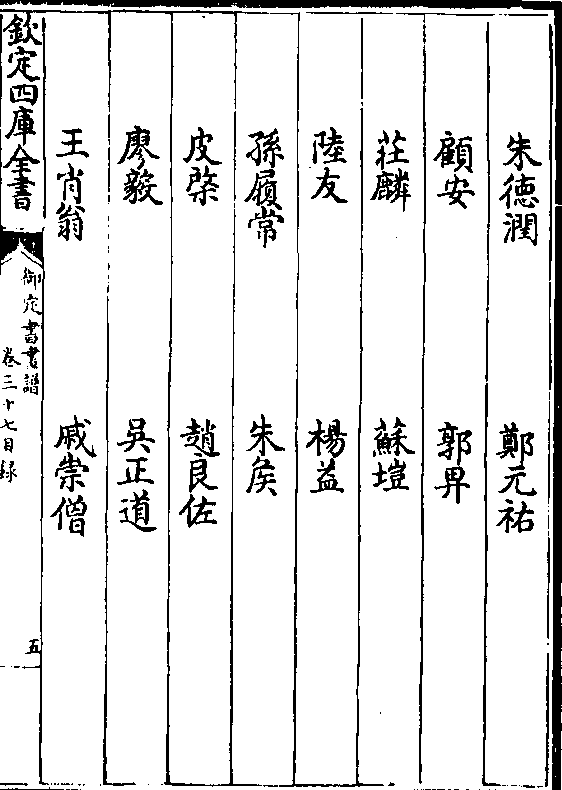 朱德潤 鄭元祐
顧安 郭畀
莊麟 蘇塏
陸友 楊益
孫履常 朱矦
皮棨 趙良佐
廖毅 吳正道
王肖翁 戚崇僧
欽定四庫全書
御定書畫譜
卷三十七目録
五